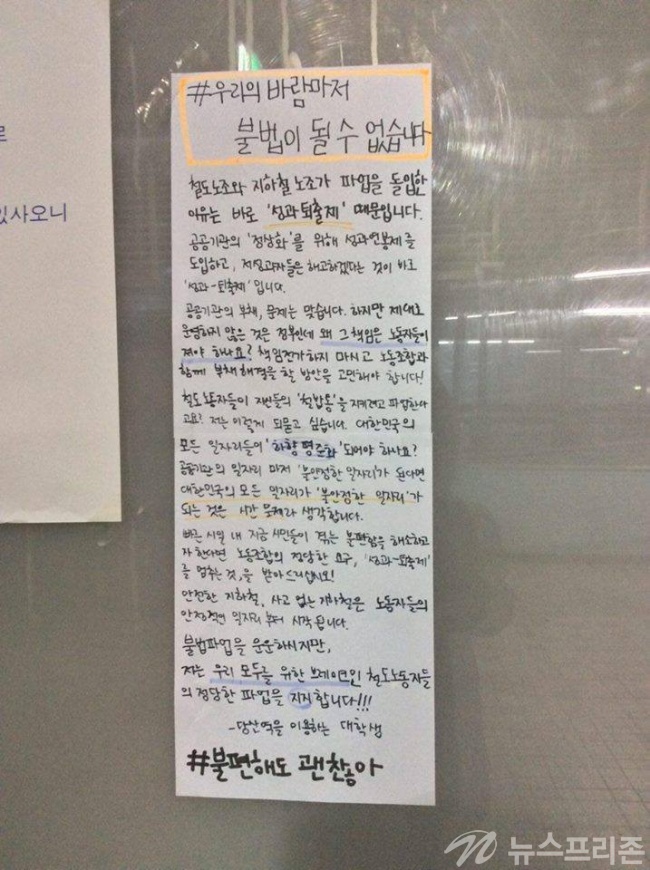 #우리의 바람마저
불법이 될 수 없습니다
철도노조와 지하철 노조가 파업을 돌입한
이유는 바로 '성과퇴출제' 때문입니다.
공공기관의 '정상화'를 위해 성과연봉제를
도입하고, 저성과자들은 해고하겠다는 것이 바로
'성과-퇴출제'입니다.
공공기관의 부채, 문제는 맞습니다. 하지만 제대로
운영하지 않은 것은 정부인데 왜 그 책임은 노동자들이
져야 하나요? 책임전가하지 마시고 노동조합과
함께 부채해결을 할 방안을 고민해야 합니다!
철도노동자들이 자신들의 '철밥통'을 지키려고 파업한다
고요? 저는 이렇게 되묻고 싶습니다. 대한민국의
모든 일자리들이 '하향평준화'되어야 하나요?
공공기관의 일자리 마저 '불안정한 일자리가 된다면
대한민국의 모든 일자리가 '불안정한 일자리'가
되는 것은 시간 문제라 생각합니다.
빠른 시일 내 지금 시민들이 겪는 불편함을 해소하고
자 한다면 노동조합의 정당한 요구, '성과-퇴출제'
를 멈추는 것,을 받아드리십시오!
안전한 지하철, 사고 없는 지하철은 노동자들의
안정적인 일자리 부터 시작됩니다.
불법파업을 운운하시지만,
저는 우리 모두를 위한 브레이크인 철도노동자들
의 정당한 파업을 지지합니다!!!
-당산역을 이용하는 대학생
#불편해도 괜찮아
로
있사오니
뉴스프리존